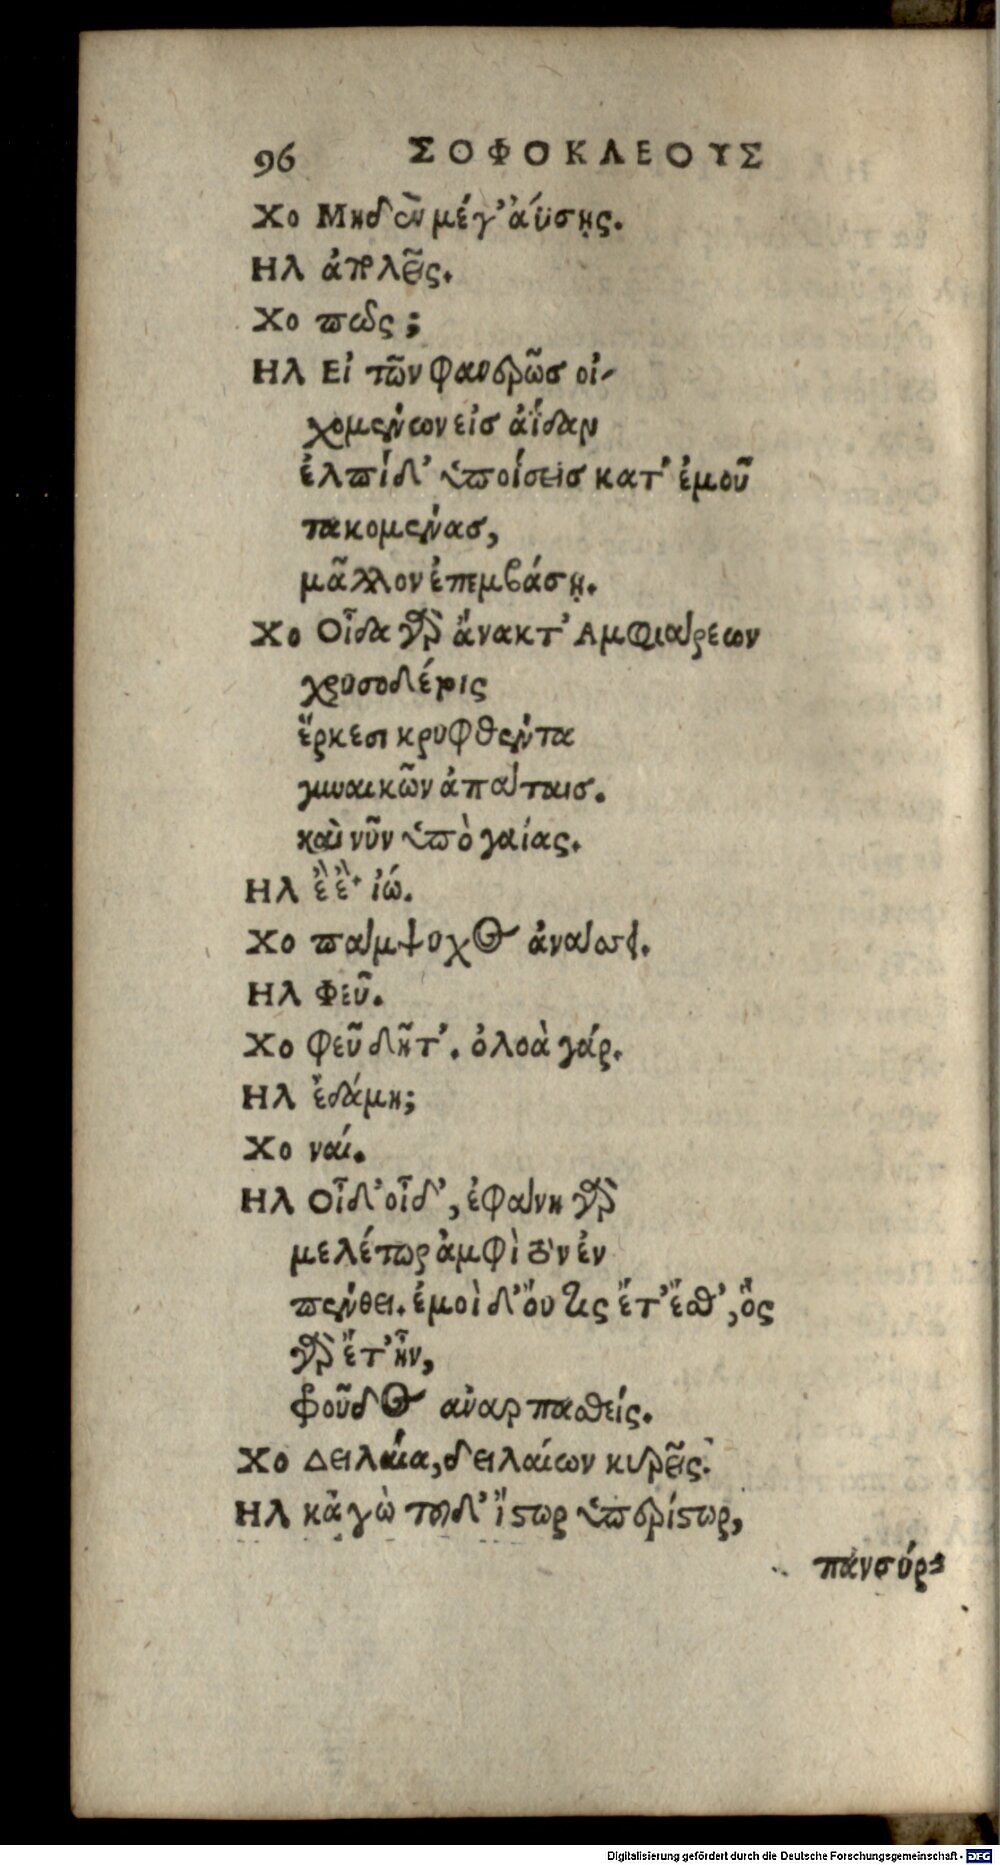 96 ΣΟΦΟΚΛΕΟΥΣ
Χο Μηδὲν μέγ' ἀΰσῃς.
Ηλ ἀπολεῖς.
Χο πῶς;
Ηλ Εἰ τῶν φανερῶσ οἰ-
χομένων εἰσ ἀΐδαν
ἐλπίδ' ὑποίσεισ κατ' ἐμοῦ
τακομένασ,
μᾶλλον ἐπεμβάσῃ.
Χο Οἶδα γὰρ ἄνακτ' Αμφιάρεων
χρυσοδέτοις
ἕρκεσι κρυφθέντα
γυναικῶν ἀπάταισ.
καὶ νῦν ὑπὸ γαίας.
Ηλ ἒ ἔ· ἰώ.
Χο πάμψυχος ἀνάσσει.
Ηλ Φεῦ.
Χο φεῦ δῆτ'. ὀλοὰ γάρ.
Ηλ ἐδάμη;
Χο ναί.
Ηλ Οἶδ' οἶδ', ἐφάνη γὰρ
μελέτωρ ἀμφὶ τὸν ἐν
πένθει. ἐμοὶ δ' ὄυ τις ἔτ' ἔσθ', ὃς
γὰρ ἔτ' ἦν,
φοῦδος ἀναρπασθείς.
Χο Δειλαία, δειλαίων κυρεῖς.
Ηλ κἀγὼ τοῦδ' ἵστωρ ὑπερίστωρ,
πανσύρ-
Digitalisierung gefördert durch die Deutsche Forschungsgemeinschaft - DFG